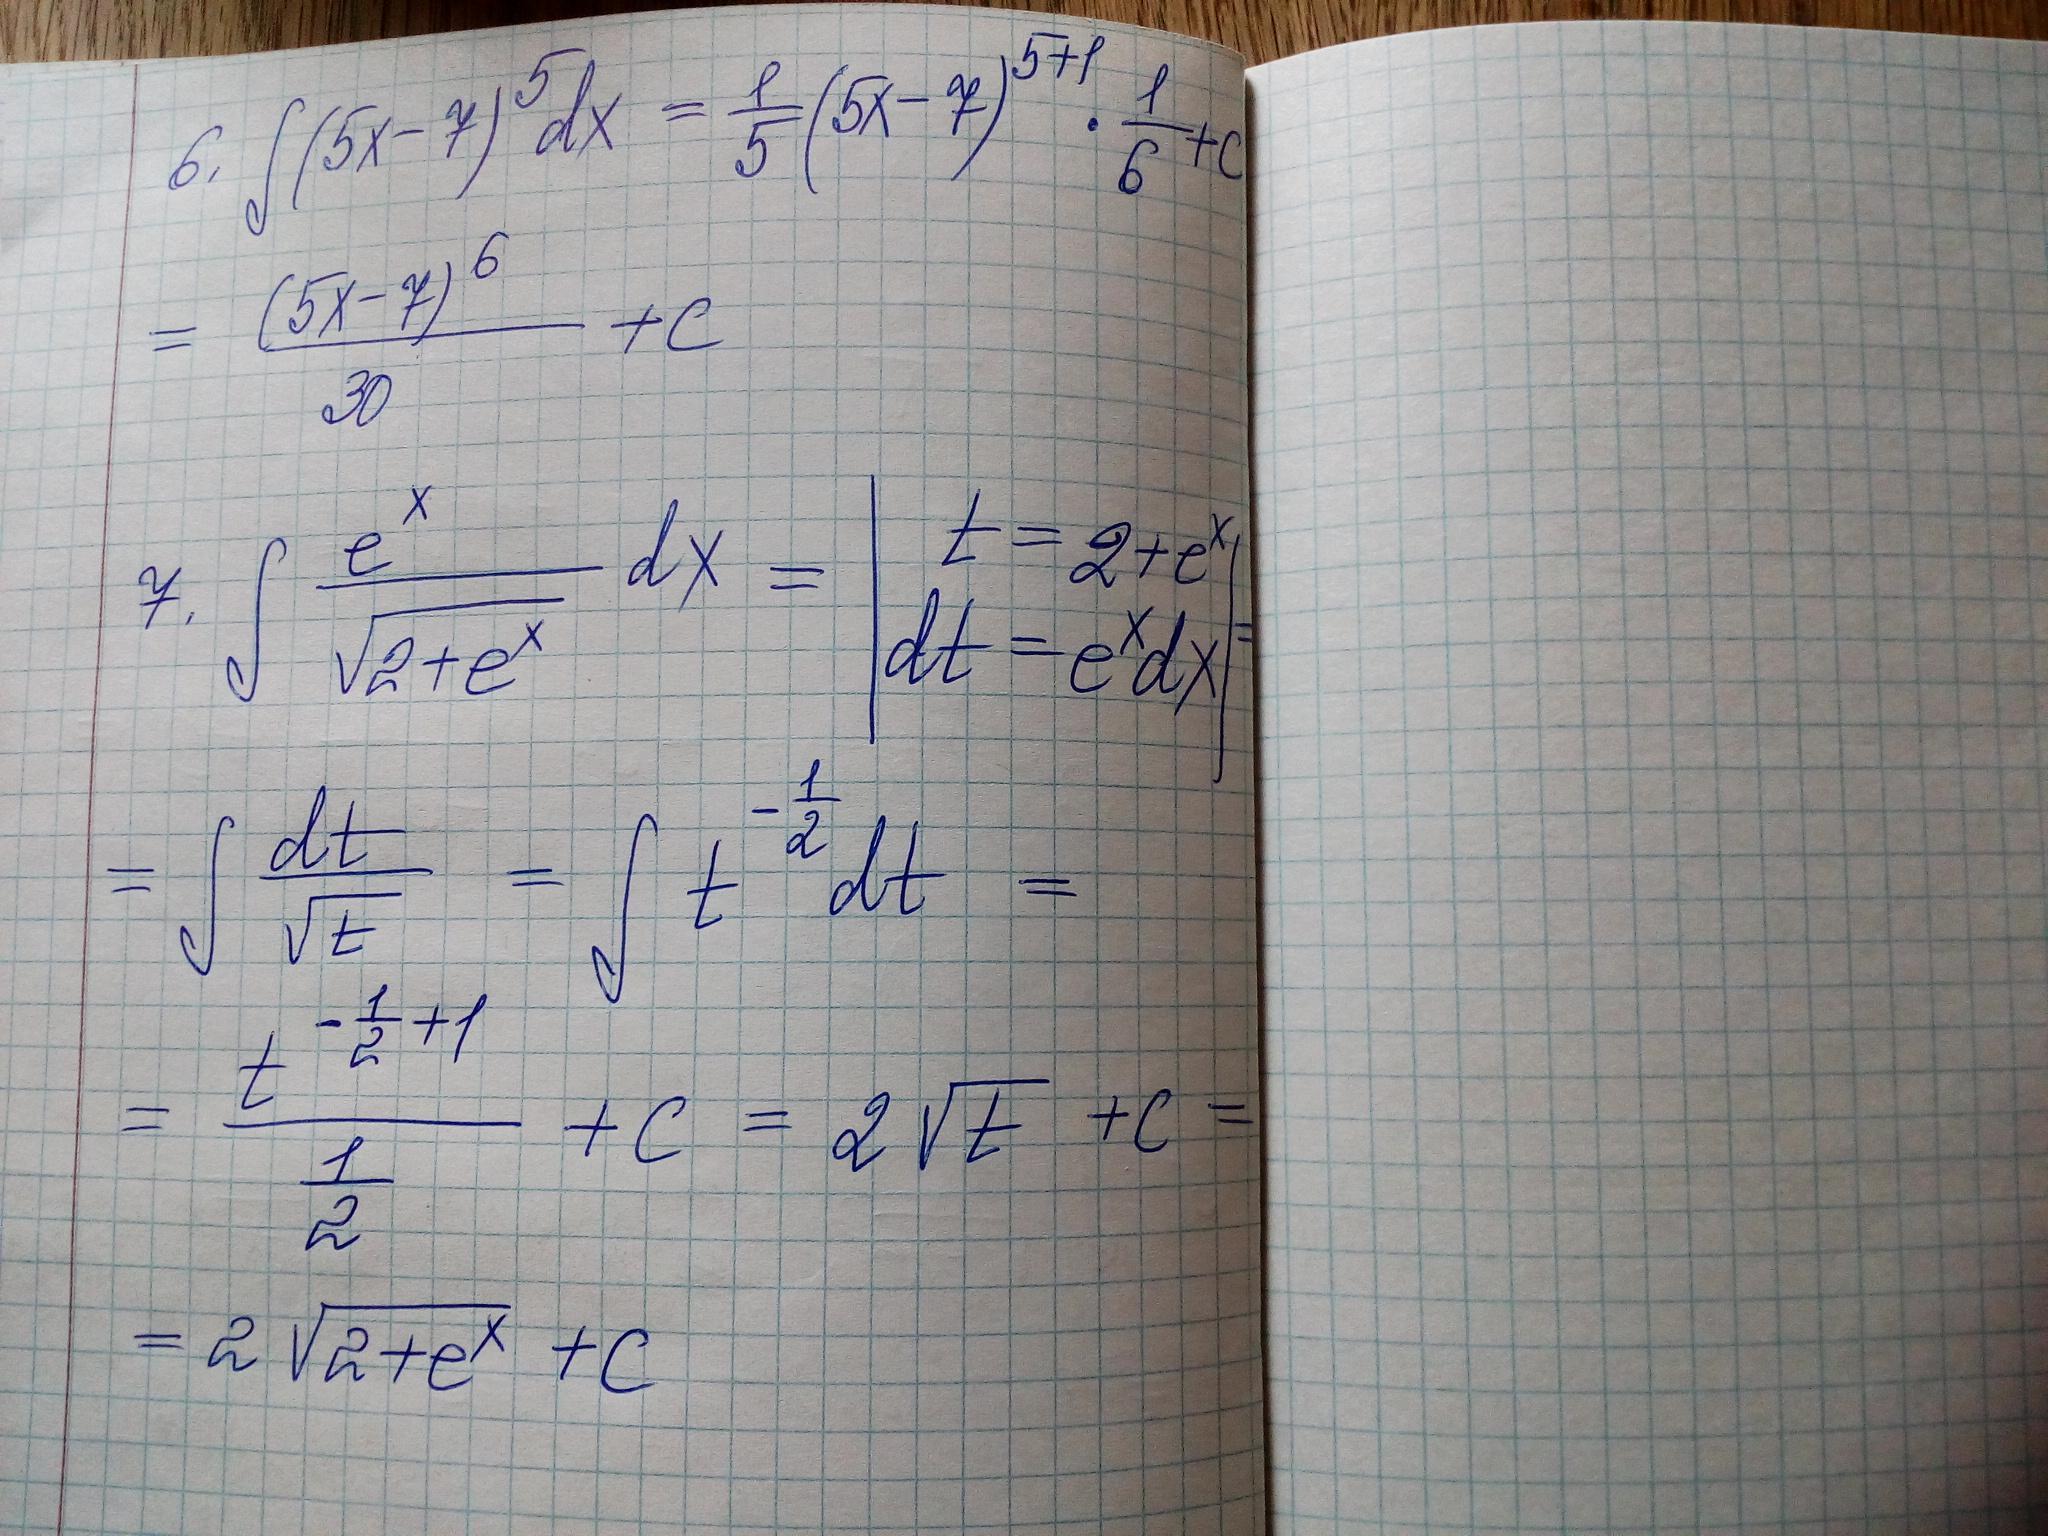 6. ∫(5x-7)^5 dx = 1/5 (5x-7)^(5+1) · 1/6 + C
= (5x-7)^6/30 + C
7. ∫ e^x/√(2+e^x) dx = | t = 2+e^x
dt = e^x dx | =
= ∫ dt/√t = ∫ t^(-1/2) dt =
= t^(-1/2+1)/(1/2) + C = 2√t + C =
= 2√(2+e^x) + C